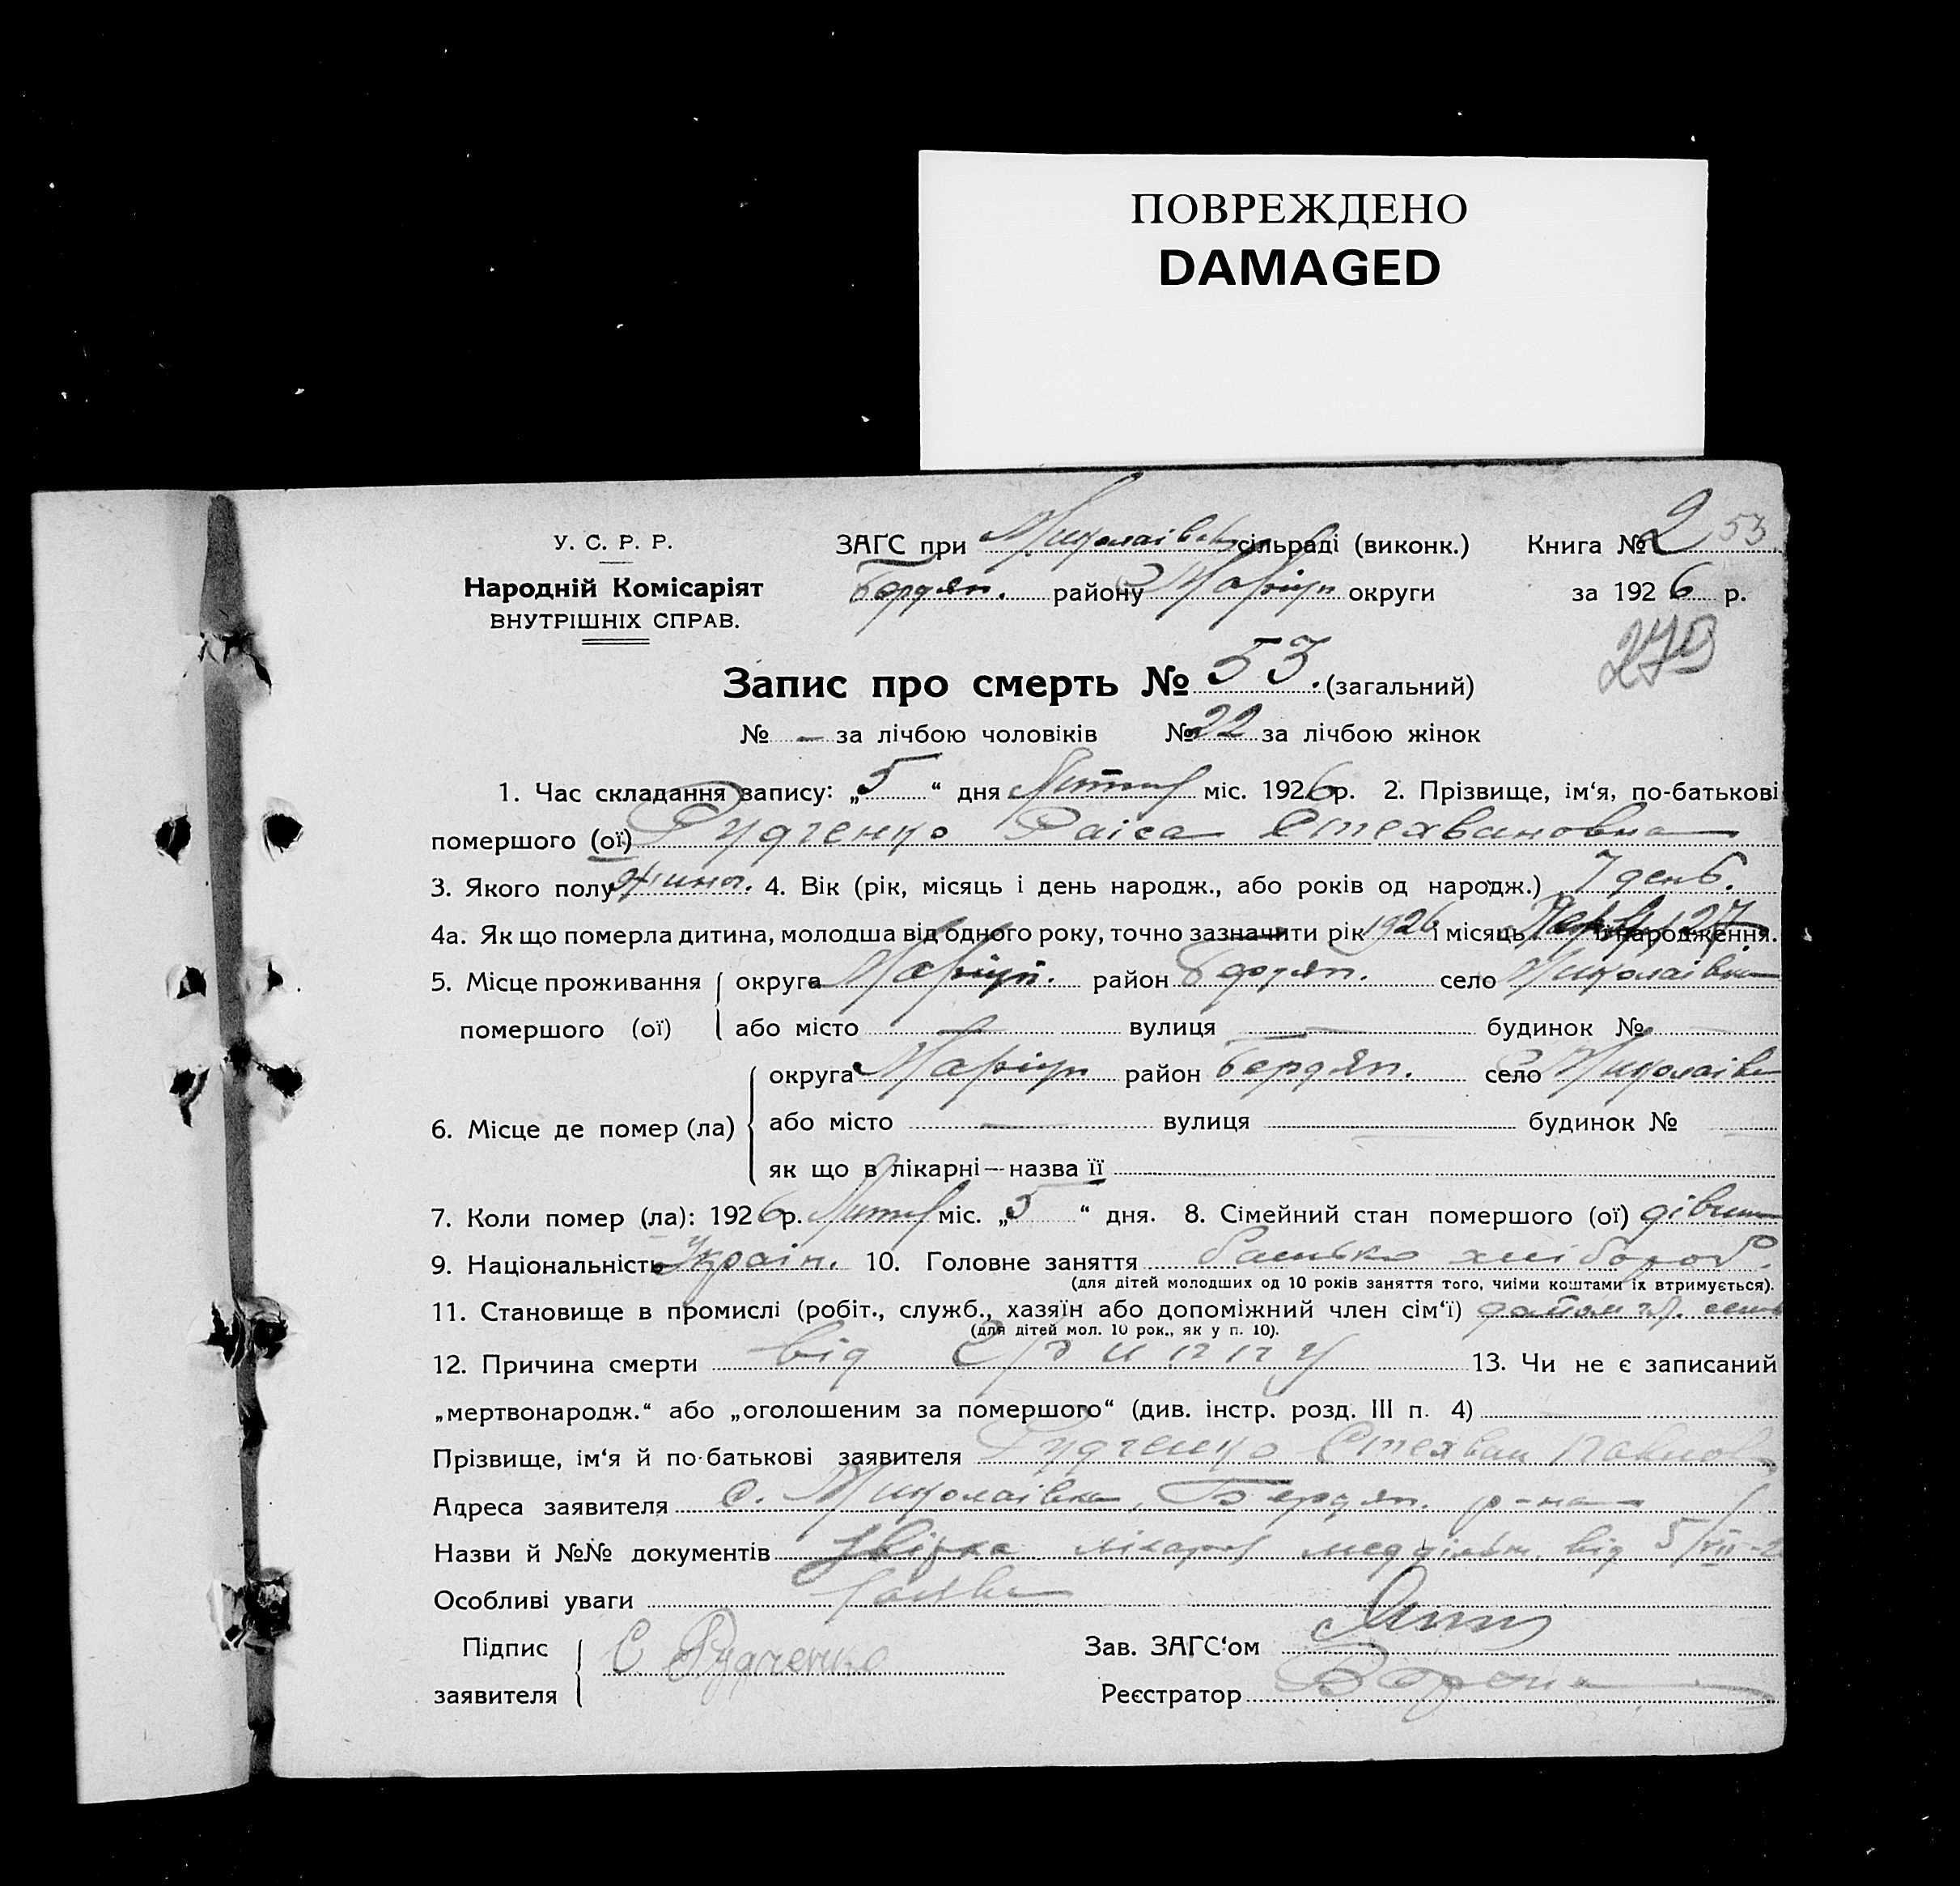 ПОВРЕЖДЕНО
DAMAGED
У. С. Р. Р.
Народній Комісаріят
ВНУТРІШНІХ СПРАВ.
ЗАГС при Миколаівськ сільраді (виконк.) Книга № 2 53
Бердян. району Маріуп округи за 1926 р.
273
Запис про смерть № 53. (загальний)
№ — за лічбою чоловіків № 22 за лічбою жінок
1. Час складання запису: „5“ дня Липня міс. 1926 р. 2. Прізвище, ім‘я, по-батькові
помершого (ої) Рудченко Раіса Стехвановна
3. Якого полу жіноч. 4. Вік (рік, місяць і день народж., або років од народж.) 7 день.
4а. Як що померла дитина, молодша від одного року, точно зазначити рік 1926 і місяць 27 її народження.
5. Місце проживання округа Маріуп. район Бердян. село Миколаівка
помершого (ої) або місто — вулиця — будинок № —
округа Маріуп район Бердян. село Миколаівк
6. Місце де помер (ла) або місто — вулиця — будинок №
як що в лікарні—назва її
7. Коли помер (ла): 1926 р. Липня міс. „5“ дня. 8. Сімейний стан помершого (ої) дівиця
9. Національність Украін. 10. Головне заняття батько хлібороб.
(для дітей молодших од 10 років заняття того, чиїми коштами їх втримується).
11. Становище в промислі (робіт., служб., хазяїн або допоміжний член сім‘ї)
(для дітей мол. 10 рок., як у п. 10).
12. Причина смерти від 13. Чи не є записаний
„мертвонародж.“ або „оголошеним за помершого“ (див. інстр. розд. III п. 4)
Прізвище, ім‘я й по-батькові заявителя Рудченко Стехван Павлов
Адреса заявителя с. Миколаівка, Бердян. р-на
Назви й №№ документів лікаря від 5/VII-2
Особливі уваги
Підпис С Рудченко Зав. ЗАГС‘ом
заявителя Реєстратор